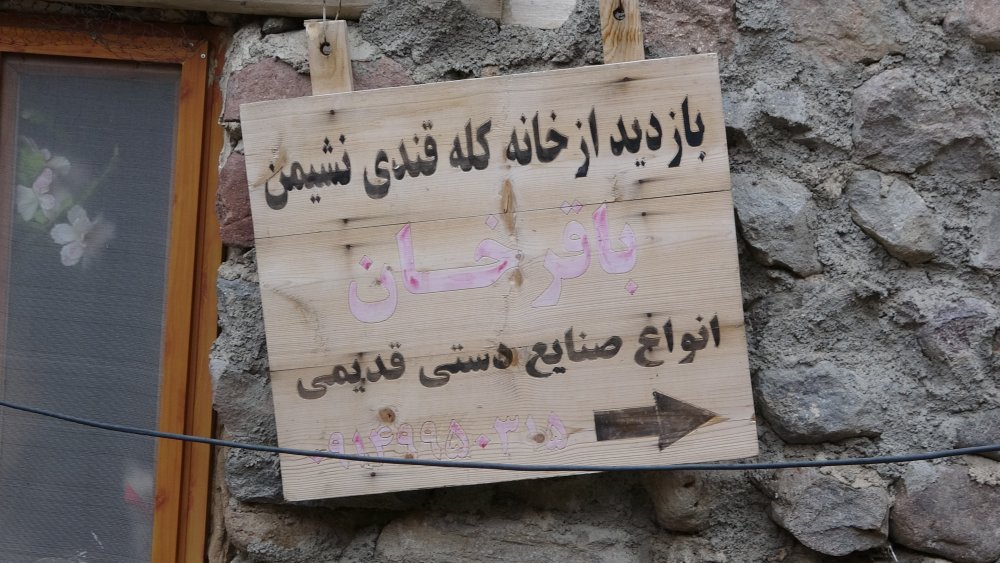 بازدید از خانه کله قندی نشیمن
باقر خان
انواع صنایع دستی قدیمی
۰۹۱۴۹۹۵۰۳۱۵